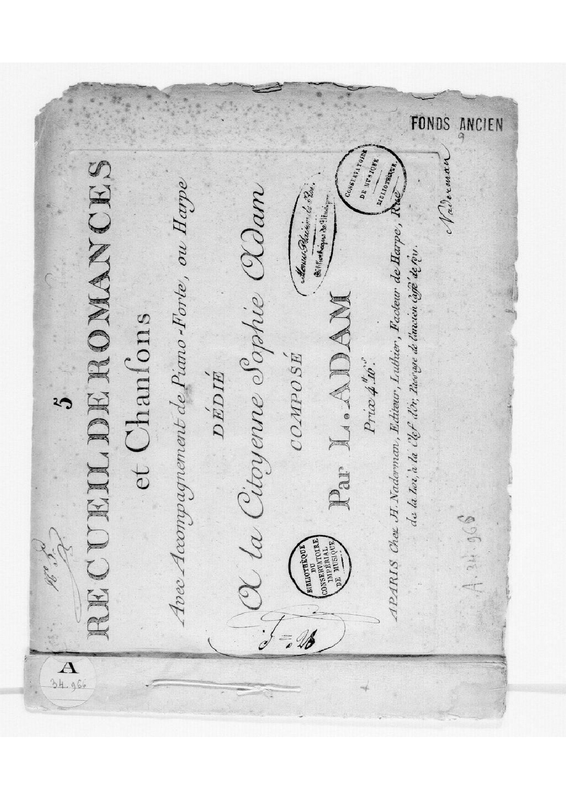 FONDS ANCIEN
5
RECUEIL DE ROMANCES
et Chansons
Avec Accompagnement de Piano-Forte, ou Harpe
DÉDIÉ
A la Citoyenne Sophie Adam
COMPOSÉ
Par L. ADAM
Prix 4.tt 10.s
A PARIS Chez J.H. Naderman, Editeur, Luthier, Facteur de Harpe, Rue
de la Loi, à la Clef d'Or, Passage de l'ancien Caffé de Foi.
Naderman
Menus Plaisirs du Roi
Bibliothèque de Musique
CONSERVATOIRE
DE MUSIQUE
BIBLIOTHÈQUE
BIBLIOTHÈQUE
DU
CONSERVATOIRE
IMPÉRIAL
DE MUSIQUE
A 34 966
A
34.966